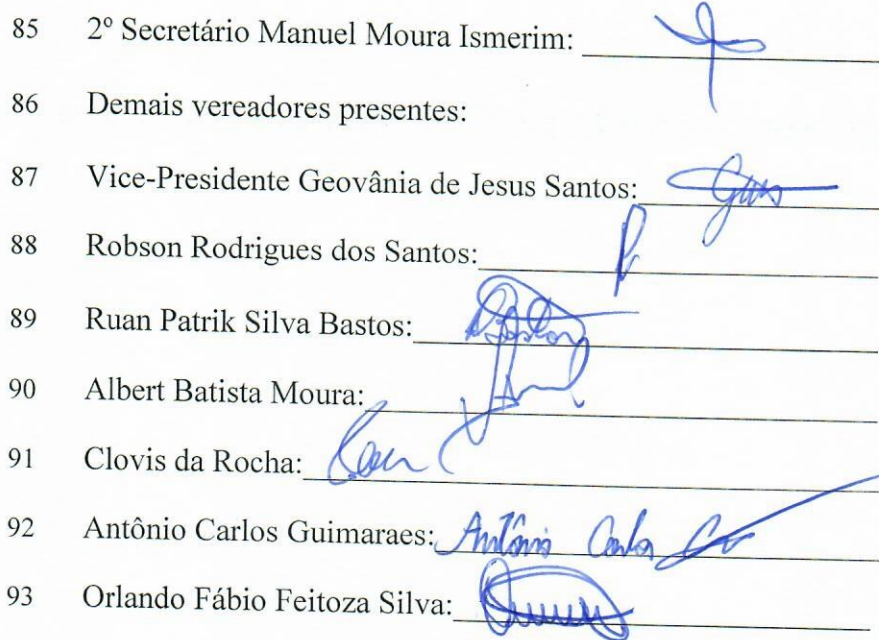 85 2º Secretário Manuel Moura Ismerim:
86 Demais vereadores presentes:
87 Vice-Presidente Geovânia de Jesus Santos:
88 Robson Rodrigues dos Santos:
89 Ruan Patrik Silva Bastos:
90 Albert Batista Moura:
91 Clovis da Rocha:
92 Antônio Carlos Guimaraes: Antônio Carlos
93 Orlando Fábio Feitoza Silva: